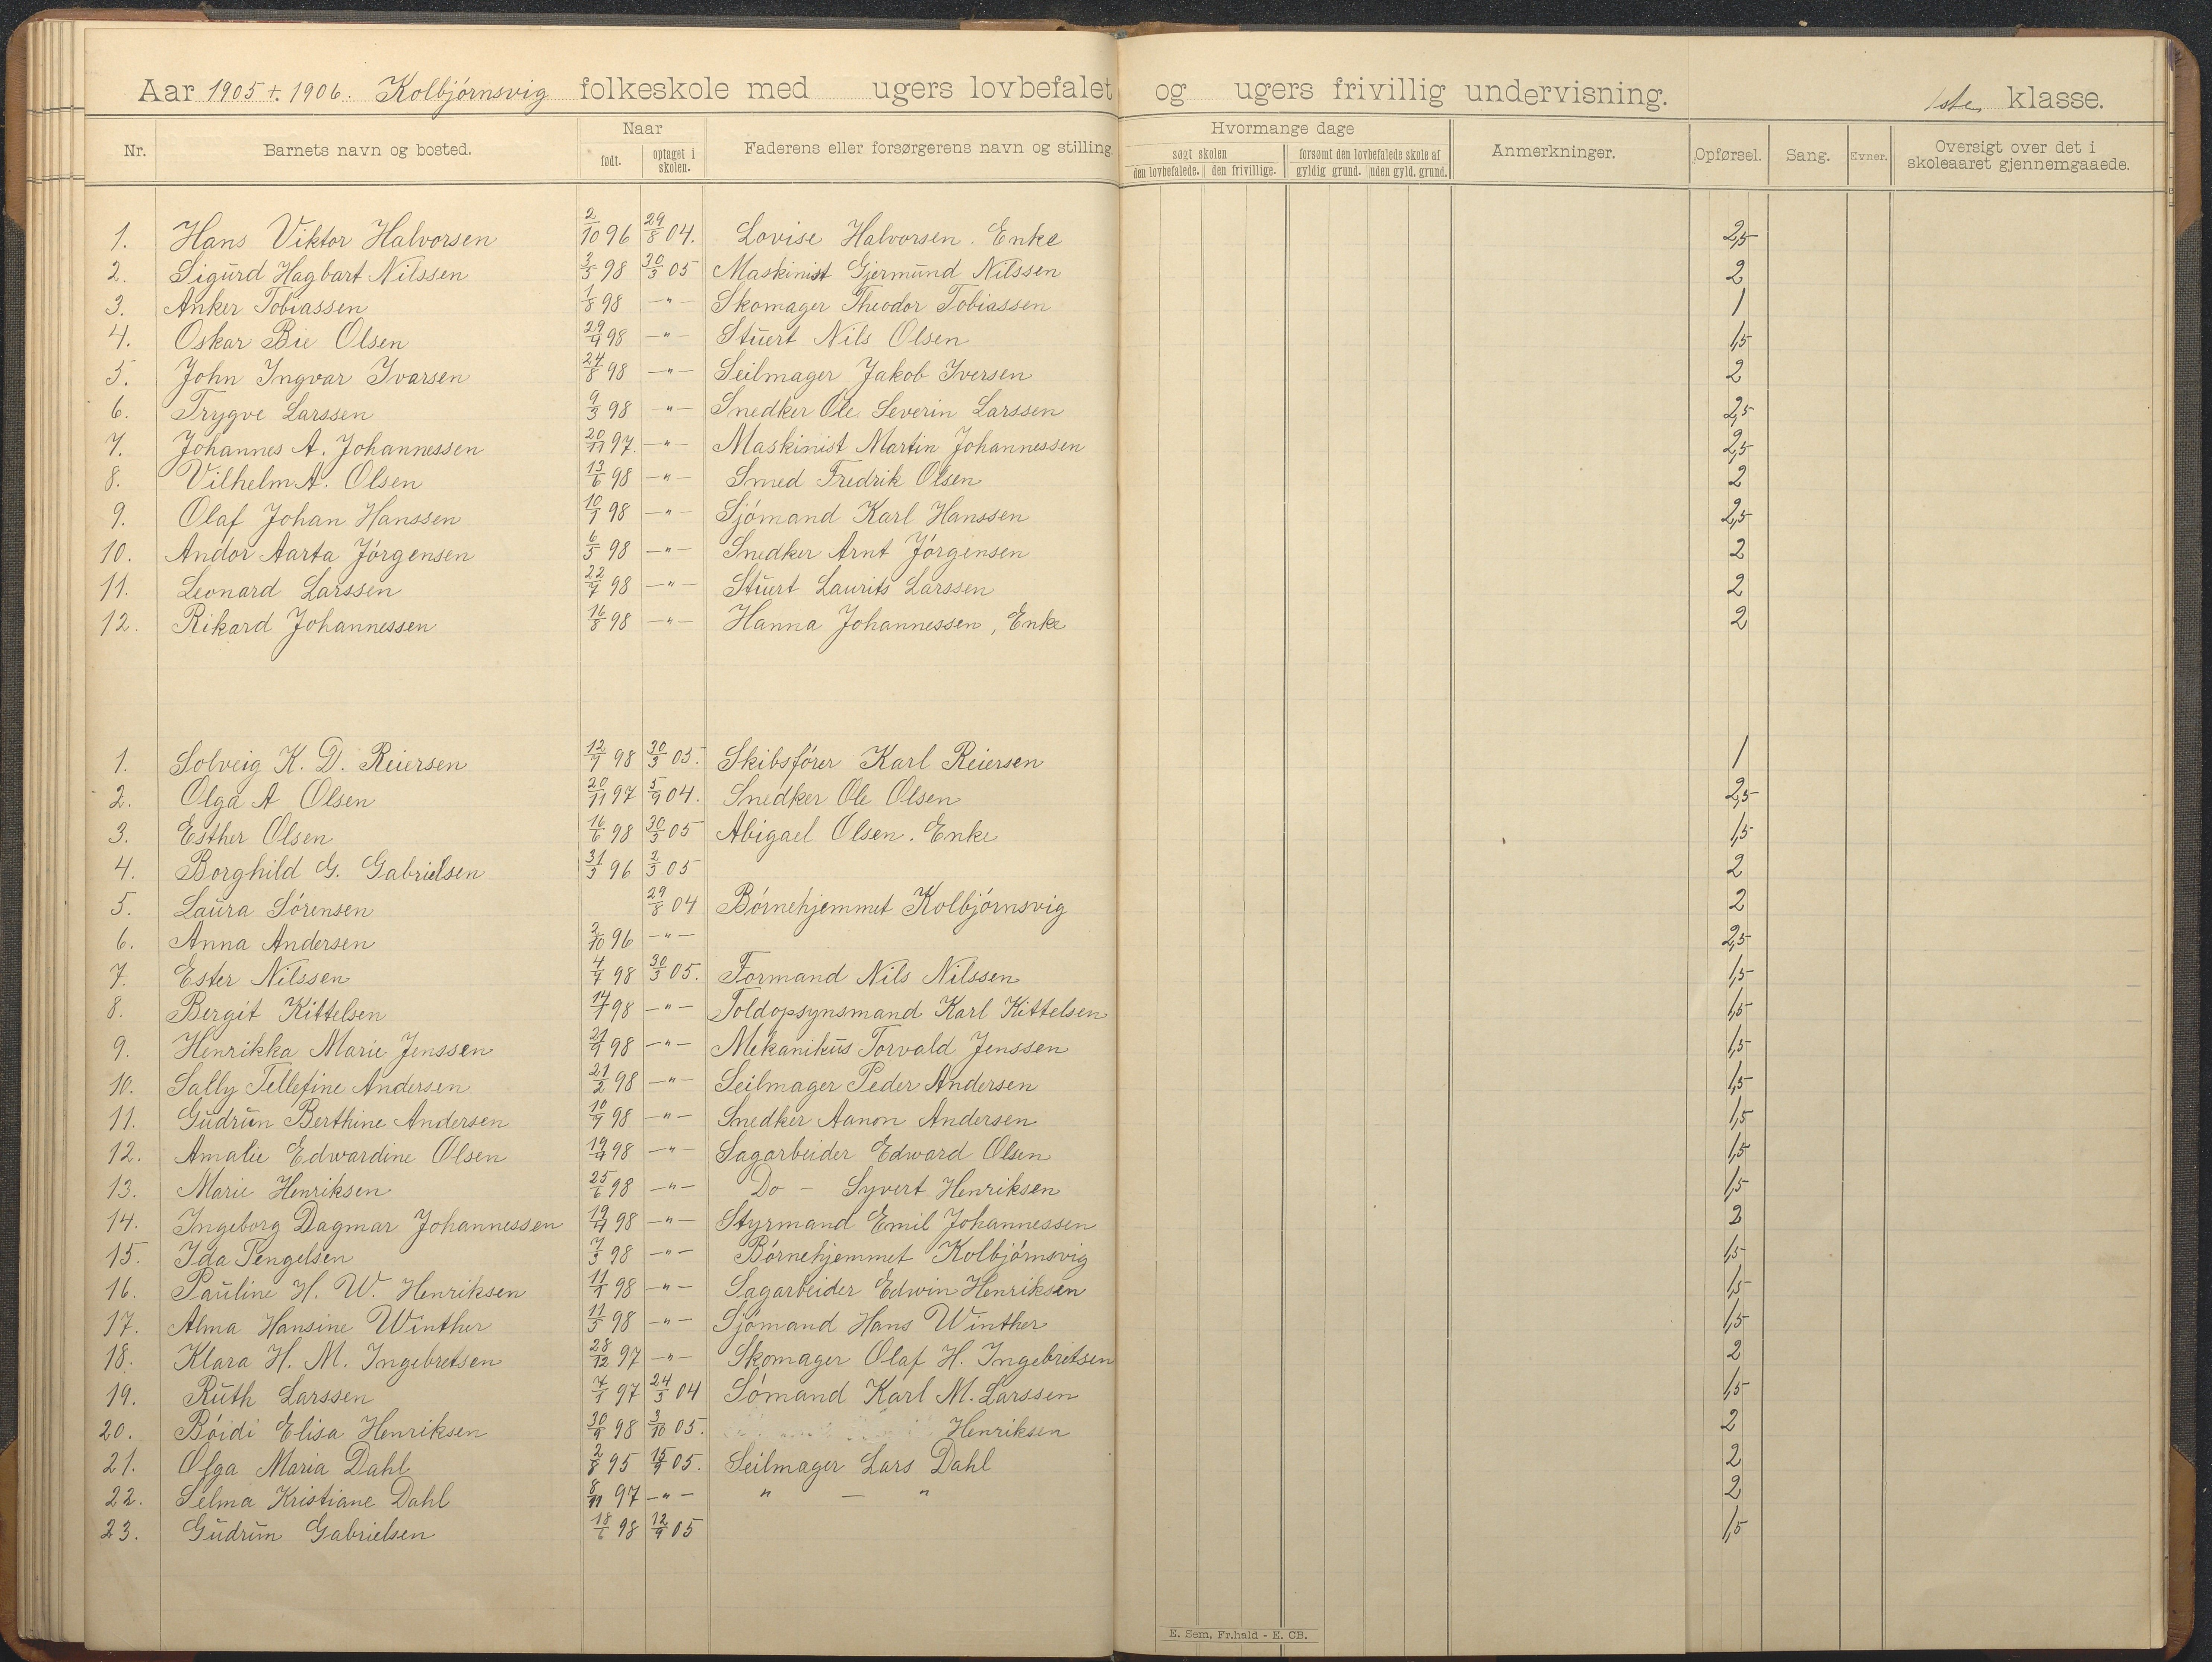 Aar 1905 + 1906. Kolbjørnsvig folkeskole med ugers lovbefalet og ugers frivillig undervisning. 1ste klasse.
Nr. Barnets navn og bosted. Naar født. optaget i skolen. Faderens eller forsørgerens navn og stilling. Hvormange dage søgt skolen den lovbefalede. den frivillige. forsømt den lovbefalede skole af gyldig grund. uden gyld. grund. Anmerkninger. Opførsel. Sang. Evner. Oversigt over det i skoleaaret gjennemgaaede.
1. Hans Viktor Halvorsen 2/10 96 29/8 04. Lovise Halvorsen. Enke 2,5
2. Sigurd Hagbart Nilssen 3/5 98 30/3 05 Maskinist Gjermund Nilssen 2
3. Anker Tobiassen 1/8 98 -"- Skomager Theodor Tobiassen 1
4. Oskar Bie Olsen 29/4 98 -"- Stuert Nils Olsen 1,5
5. John Ingvar Ivarsen 24/8 98 -"- Seilmager Jakob Iversen 2
6. Trygve Larssen 9/3 98 "- Snedker Ole Severin Larssen 2,5
7. Johannes A. Johannessen 20/11 97. -"- Maskinist Martin Johannessen 2,5
8. Vilhelm A. Olsen 13/6 98 -"- Smed Fredrik Olsen 2
9. Olaf Johan Hanssen 10/1 98 -"- Sjømand Karl Hanssen 2,5
10. Andor Aarta Jørgensen 6/5 98 -"- Snedker Arnt Jørgensen 2
11. Leonard Larssen 22/7 98 -"- Stuert Laurits Larssen 2
12. Rikard Johannessen 16/8 98 -"- Hanna Johannessen, Enke 2
1. Solveig K. D. Reiersen 12/9 98 30/3 05. Skibsfører Karl Reiersen 1
2. Olga A Olsen 20/11 97 5/9 04. Snedker Ole Olsen 2,5
3. Esther Olsen 16/6 98 30/3 05 Abigael Olsen. Enke 1,5
4. Borghild G. Gabrielsen 31/3 96 2/3 05 2
5. Laura Sørensen 29/8 04 Børnehjemmet Kolbjørnsvig 2
6. Anna Andersen 3/10 96 -"- 2,5
7. Ester Nilssen 4/7 98 30/3 05. Formand Nils Nilssen 1,5
8. Bergit Kittelsen 17/7 98 -"- Toldopsynsmand Karl Kittelsen 1,5
9. Henrikka Marie Jenssen 21/9 98 -"- Mekanikus Torvald Jenssen 1,5
10. Sally Tellefine Andersen 21/2 98 -"- Seilmager Peder Andersen 1,5
11. Gudrun Berthine Andersen 10/9 98 -"- Snedker Aanon Andersen 1,5
12. Amalie Edwardine Olsen 19/4 98 -"- Sagarbeider Edward Olsen 1,5
13. Marie Henriksen 25/6 98 -"- Do - Syvert Henriksen 1,5
14. Ingeborg Dagmar Johannessen 19/4 98 -"- Styrmand Emil Johannessen 2
15. Ida Tengelsen 7/3 98 -"- Børnehjemmet Kolbjørnsvig 1,5
16. Pauline H. W. Henriksen 11/1 98 -"- Sagarbeider Edwin Henriksen 1,5
17. Alma Hansine Winther 11/3 98 -"- Sjømand Hans Winther 1,5
18. Klara H. M. Ingebretsen 28/12 97 -"- Skomager Olaf H. Ingebretsen 2
19. Ruth Larssen 7/1 97 24/3 04 Sømand Karl M. Larssen 1,5
20. Bóidi Elisa Henriksen 30/9 98 3/10 05. Henriksen 2
21. Olga Maria Dahl 2/8 95 15/9 05. Seilmager Lars Dahl 2
22. Selma Kristiane Dahl 8/11 97 -"- " - " 2
23. Gudrun Gabrielsen 18/6 98 12/9 05 1,5
E. Sem, Fr.hald - E. CB.